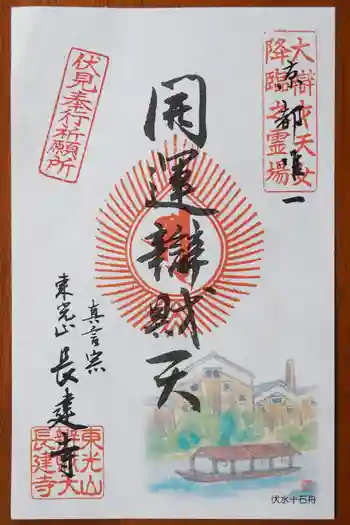 大辯才天女
降臨之霊場
京都唯一
伏見奉行祈願所
開運辨財天
真言宗
東光山
長建寺
東光山
辨財天
長建寺
伏水十石舟